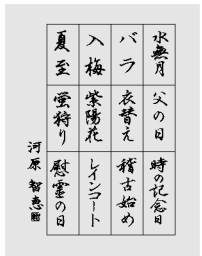 水無月
父の日
時の記念日
バラ
衣替え
稽古始め
入梅
紫陽花
レインコート
夏至
蛍狩り
慰霊の日
河原智恵